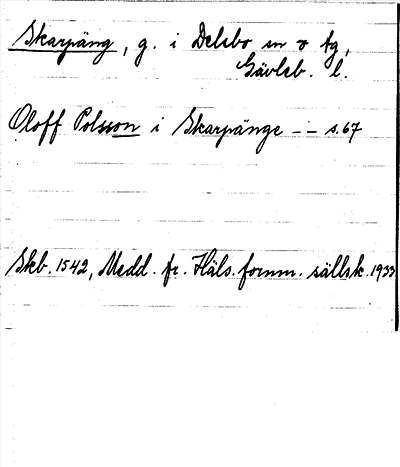 Skarpäng, g. i Delsbo sn o tg,
Gävleb. l.
Oloff Polsson i Skarpänge -- s. 67
Skb. 1542, Medd. fr. Häls. fornm. sällsk. 1933